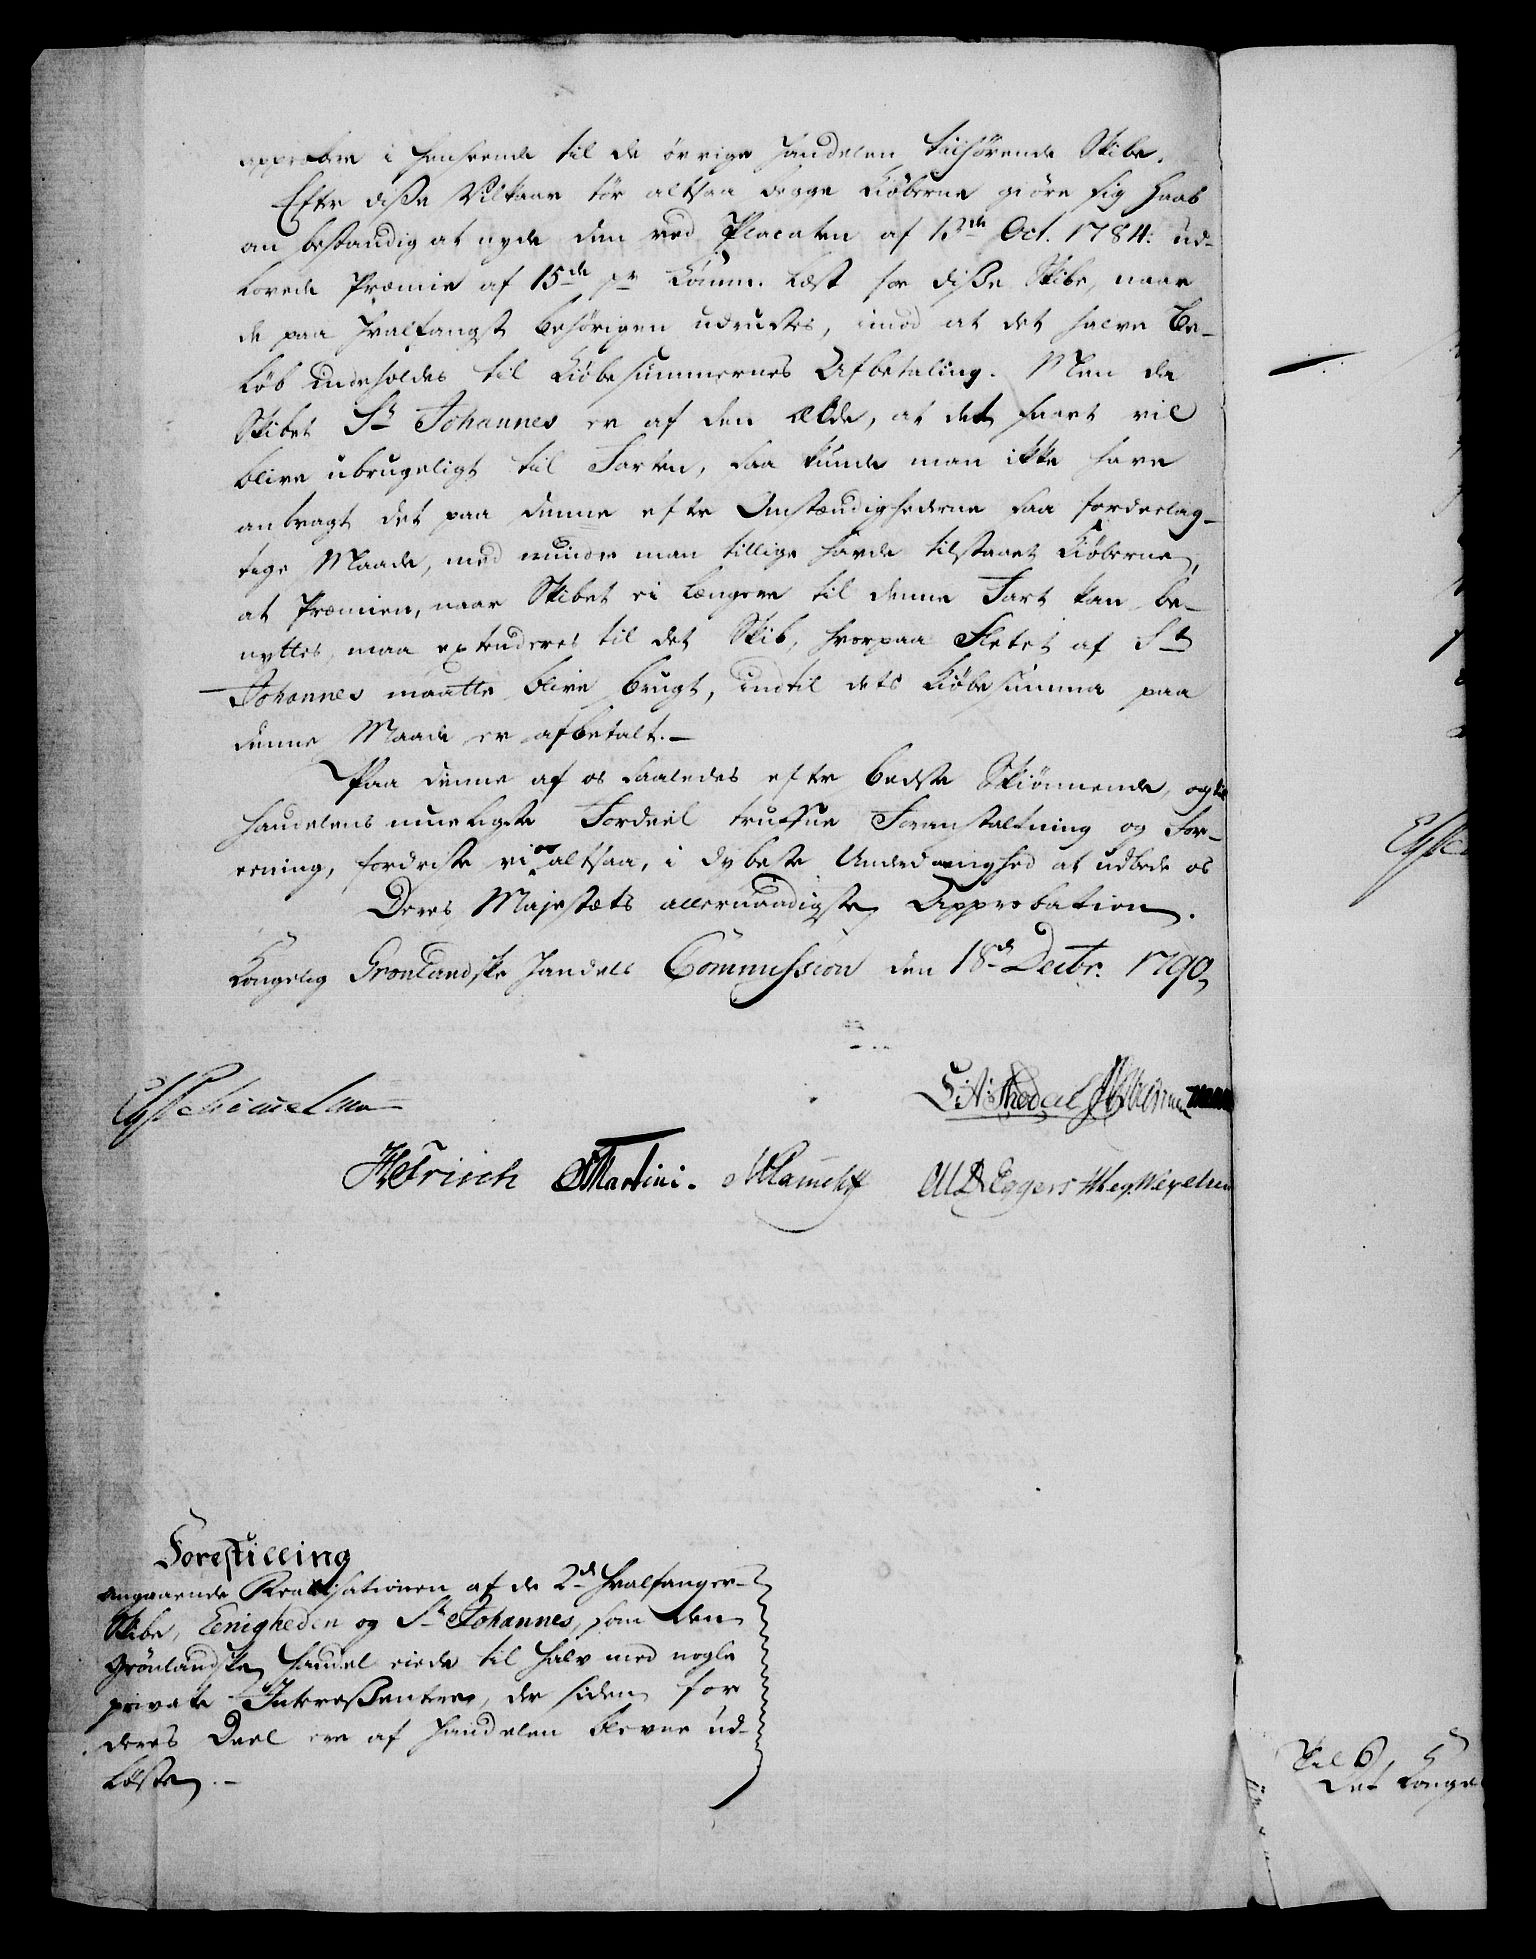 approbere i Henseende til de övrige Handelen tilhörende Skibe.
Efter disse Vilkaar tör altsaa begge Kiöberne giöre sig Haab
om bestandig at nyde den ved Placaten af Oct. 1784: ud-
lovede Præmie af 15de pr Comm. Læst for disse Skibe, naar
de paa Hvalfangst behörigen udrustes, imod at det halve Be-
löb indeholdes til Kiöbesummernes Afbetaling. Men da
Skibet St Johannes er af den Ælde, at det snart vil
blive ubrugeligt til Farten, saa kunde man ikke have
anbragt det paa denne efter Omstændighederne saa fordeelag-
tige Maade, med mindre man tillige havde tilstaaet Kiöberne,
at Præmien, naar Skibet ei længere til denne Fart kan be-
nyttes, maa extenderes til det Skib, hvorpaa Fletet af St
Johannes maatte blive brugt, indtil dets Kiöbesumma paa
denne Maade er afbetalt.-
Paa denne af os saaledes efter bedste Skiönnende, og til
Handelens mueligste Fordeel trufne Foranstaltning og For-
eening, fordriste vi os altsaa, i dybeste Underdanighed at udbede os
Deres Majestæts allernaadigste Approbation.
Kongelig Grønlandske Handels Commission den 18de Decbr. 1790,
Schimmelmann
C. A. Thodal
Frisch Martini. Eggers Wexelsen
Forestilling
angaaende Realisationen af de 2de Hvalfanger-
Skibe, Eenigheden og St Johannes, som den
Grönlandske Handel eiede til Halv med nogle
private Interessentere, der siden for
deres Deel ere af Handelen blevne ud-
löste.-
Det Konge